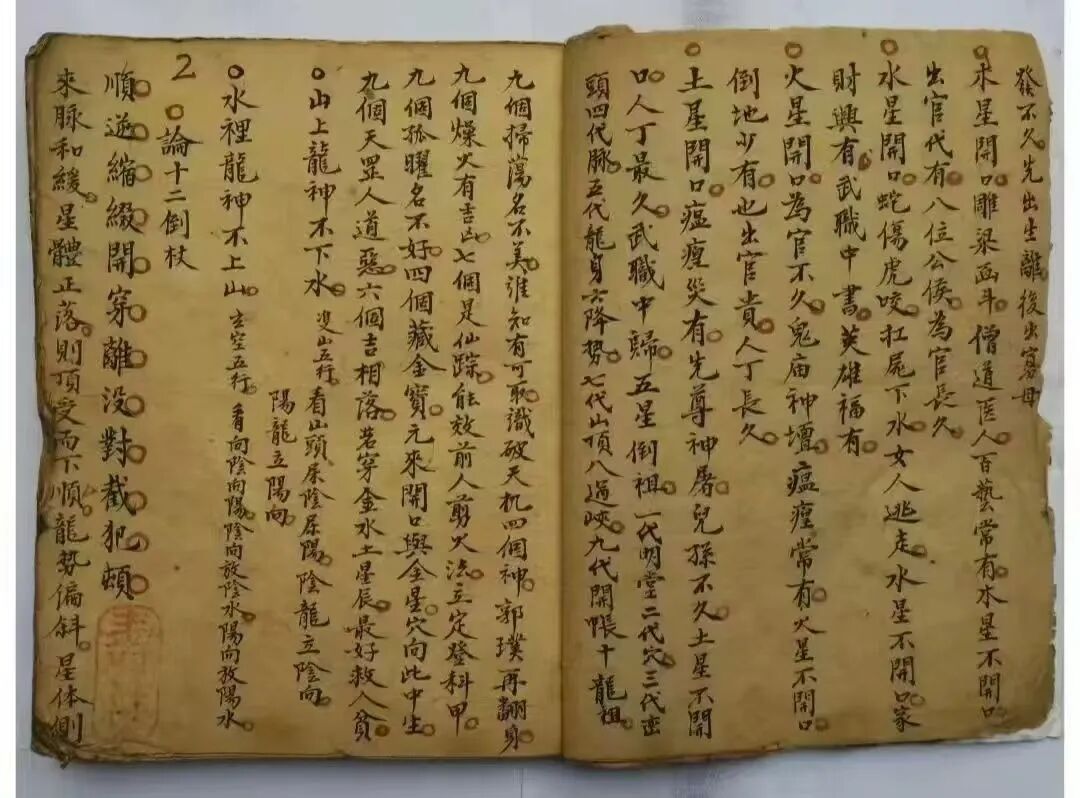 發不久。先出生離。後出寡母。
木星開口雕梁画斗。僧道医人百藝常有。木星不開口。
出官代有。八位公侯。為官長久。
水星開口蛇傷虎咬。扛屍下水。女人逃走。水星不開口。家
財興有。武職中書。英雄福有。
火星開口。為官不久。鬼庙神壇。瘟㾮常有。火星不開口。
倒地少有。也出官貴。人丁長久。
土星開口。瘟㾮災有。先尊神屠。兒孫不久。土星不開
口。人丁最久。武職中歸。五星倒祖。一代明堂二代穴。三代巒
頭四代脉。五代龍身六降勢。七代山頂八過峽。九代開帳十龍祖。
九個掃蕩名不美。誰知有可取。識破天机四個神。郭璞再翻身。
九個燥火有吉凶。七個是仙踪。能效前人剪火法。立定登科甲。
九個孤曜名不好。四個藏金寶。元來開口與金星。穴向此中生。
九個天罡人道惡。六個吉相落。若穿金水土星辰。最好救人貧。
山上龍神不下水。双山五行。看山頭屬陰屬陽。陰龍立陰向。
陽龍立陽向。
水裡龍神不上山。玄空五行。看向陰向陽。陰向放陰水。陽向放陽水。
2 論十二倒杖
順逆縮綴開穿離没對截犯頓
來脉和緩。星體正落。則頂受而下順。龍勢偏斜。星体側